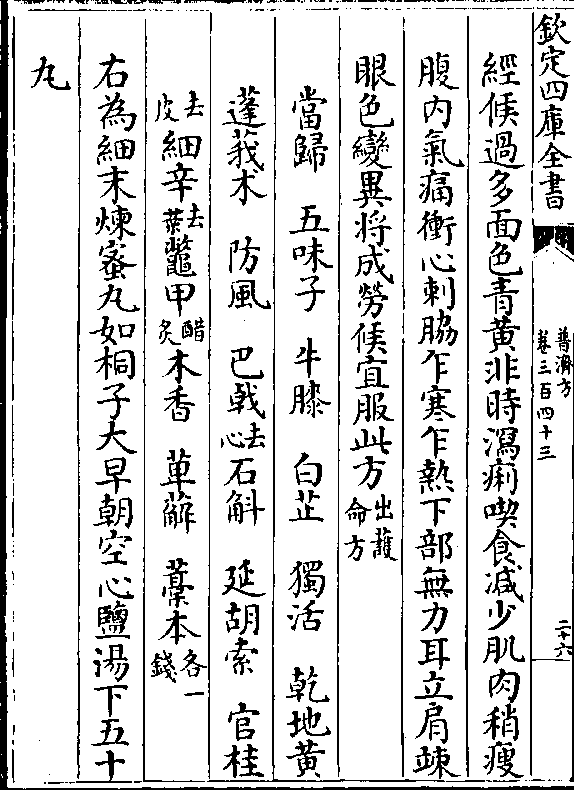 欽定四庫全書
普濟方
卷三百四十三
二十六
經候過多面色青黃非時瀉痢喫食減少肌肉稍瘦
腹内氣痛衝心刺脇乍寒乍熱下部無力耳立肩竦
眼色變異將成勞候宜服此方出護命方
當歸 五味子 牛膝 白芷 獨活 乾地黃
蓬莪术 防風 巴戟去心 石斛 延胡索 官桂
去皮 細辛去葉 鼈甲醋炙 木香 萆薢 藁本各一錢
右為細末煉蜜丸如桐子大早朝空心鹽湯下五十
丸